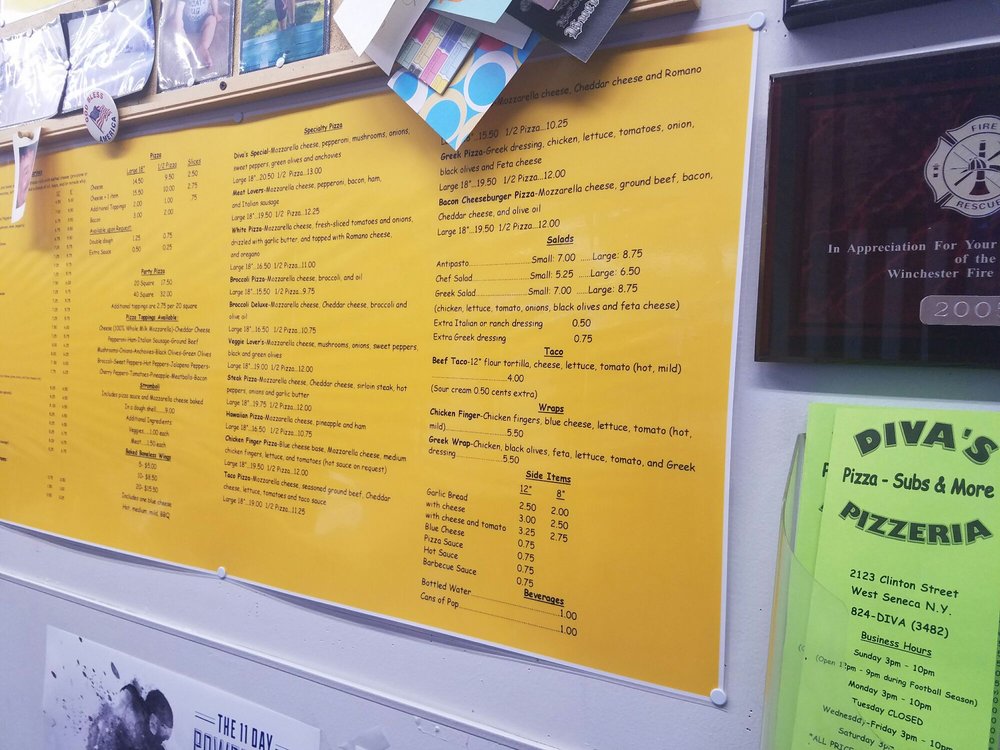 GOD BLESS
AMERICA
Pizza
Large 18" 1/2 Pizza Slices
Cheese 14.50 9.50 2.50
Cheese + 1 item 15.50 10.00 2.75
Additional Toppings 2.00 1.00 .75
Bacon 3.00 2.00
Available upon Request:
Double dough 1.25 0.75
Extra Sauce 0.50 0.25
Party Pizza
20 Square 17.50
40 Square 32.00
Additional toppings are 2.75 per 20 square
Pizza Toppings Available:
Cheese (100% Whole Milk Mozzarella)-Cheddar Cheese
Pepperoni-Ham-Italian Sausage-Ground Beef
Mushrooms-Onions-Anchovies-Black Olives-Green Olives
Broccoli-Sweet Peppers-Hot Peppers-Jalapeno Peppers-
Cherry Peppers-Tomatoes-Pineapple-Meatballs-Bacon
Stromboli
Includes pizza sauce and Mozzarella cheese baked
In a dough shell......9.00
Additional Ingredients:
Veggies...1.00 each
Meat ....1.50 each
Baked Boneless Wings
5- $5.00
10- $8.50
20- $15.50
Includes one blue cheese
Hot, medium, mild, BBQ
Specialty Pizza
Diva's Special-Mozzarella cheese, pepperoni, mushrooms, onions,
sweet peppers, green olives and anchovies
Large 18"...20.50 1/2 Pizza...13.00
Meat Lovers-Mozzarella cheese, pepperoni, bacon, ham,
and Italian sausage
Large 18"...19.50 1/2 Pizza...12.25
White Pizza-Mozzarella cheese, fresh-sliced tomatoes and onions,
drizzled with garlic butter, and topped with Romano cheese,
and oregano
Large 18"...16.50 1/2 Pizza...11.00
Broccoli Pizza-Mozzarella cheese, broccoli, and oil
Large 18"...15.50 1/2 Pizza...9.75
Broccoli Deluxe-Mozzarella cheese, Cheddar cheese, broccoli and
olive oil
Large 18"...16.50 1/2 Pizza...10.75
Veggie Lover's-Mozzarella cheese, mushrooms, onions, sweet peppers,
black and green olives
Large 18"...19.00 1/2 Pizza...12.00
Steak Pizza-Mozzarella cheese, Cheddar cheese, sirloin steak, hot
peppers, onions and garlic butter
Large 18"...19.75 1/2 Pizza...12.00
Hawaiian Pizza-Mozzarella cheese, pineapple and ham
Large 18"...16.50 1/2 Pizza...10.75
Chicken Finger Pizza-Blue cheese base, Mozzarella cheese, medium
chicken fingers, lettuce, and tomatoes (hot sauce on request)
Large 18"...19.50 1/2 Pizza...12.00
Taco Pizza-Mozzarella cheese, seasoned ground beef, Cheddar
cheese, lettuce, tomatoes and taco sauce
Large 18"...19.00 1/2 Pizza...11.25
Mozzarella cheese, Cheddar cheese and Romano
15.50 1/2 Pizza...10.25
Greek Pizza-Greek dressing, chicken, lettuce, tomatoes, onion,
black olives and Feta cheese
Large 18"...19.50 1/2 Pizza...12.00
Bacon Cheeseburger Pizza-Mozzarella cheese, ground beef, bacon,
Cheddar cheese, and olive oil
Large 18"...19.50 1/2 Pizza...12.00
Salads
Antipasto........................Small: 7.00 .....Large: 8.75
Chef Salad.......................Small: 5.25 .....Large: 6.50
Greek Salad......................Small: 7.00 .....Large: 8.75
(chicken, lettuce, tomato, onions, black olives and feta cheese)
Extra Italian or ranch dressing 0.50
Extra Greek dressing 0.75
Taco
Beef Taco-12" flour tortilla, cheese, lettuce, tomato (hot, mild)
......................4.00
(Sour cream 0.50 cents extra)
Wraps
Chicken Finger-Chicken fingers, blue cheese, lettuce, tomato (hot,
mild)....................5.50
Greek Wrap-Chicken, black olives, feta, lettuce, tomato, and Greek
dressing................5.50
Side Items
12" 8"
Garlic Bread 2.50 2.00
with cheese 3.00 2.50
with cheese and tomato 3.25 2.75
Blue Cheese 0.75
Pizza Sauce 0.75
Hot Sauce 0.75
Barbecue Sauce 0.75
Beverages
Bottled Water..........................1.00
Cans of Pop............................1.00
FIRE
RESCUE
In Appreciation For Your
of the
Winchester Fire
DIVA'S
Pizza - Subs & More
PIZZERIA
2123 Clinton Street
West Seneca N.Y.
824-DIVA (3482)
Business Hours
Sunday 3pm - 10pm
(Open 1?pm - 9pm during Football Season)
Monday 3pm - 10pm
Tuesday CLOSED
Wednesday-Friday 3pm - 10pm
Saturday 3pm
*ALL PRIC
THE 11 DAY